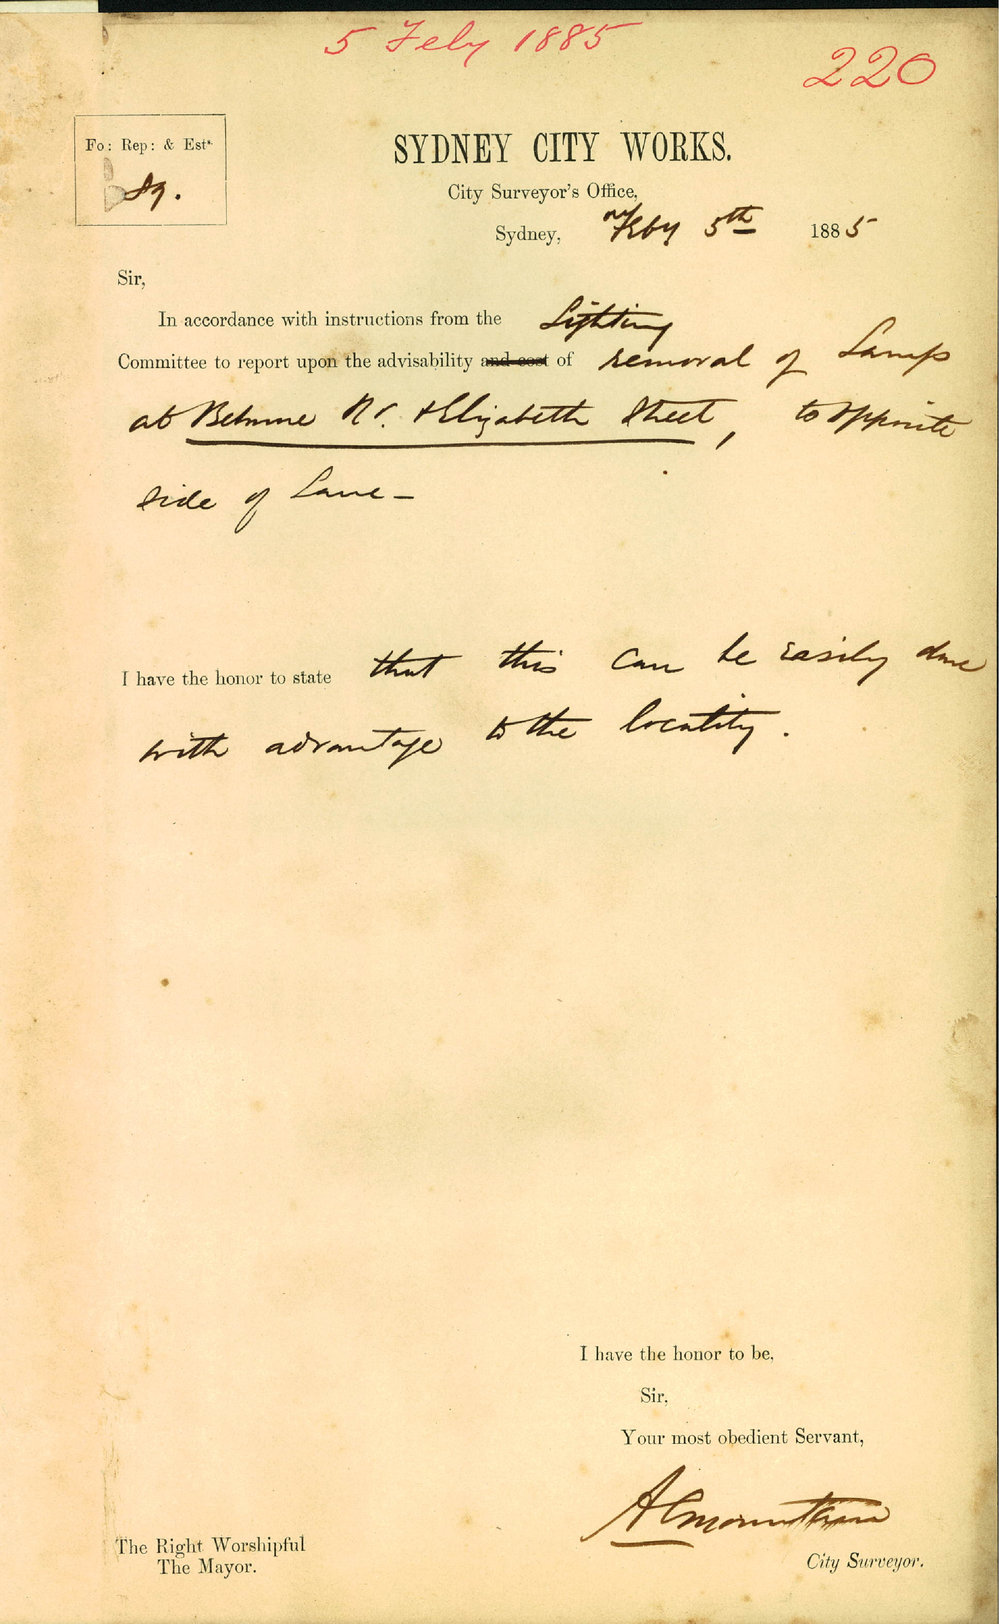 5 Feby 1885
220
Fo: Rep: & Est^s.
89.
SYDNEY CITY WORKS.
City Surveyor's Office,
Sydney, Feby 5th 1885
Sir,
In accordance with instructions from the Lighting
Committee to report upon the advisability and cost of removal of Lamps
at Belmore & Elizabeth Street, to opposite
side of Lane –
I have the honor to state that this can be easily done
with advantage to the locality.
I have the honor to be,
Sir,
Your most obedient Servant,
A C Mountain
City Surveyor.
The Right Worshipful
The Mayor.